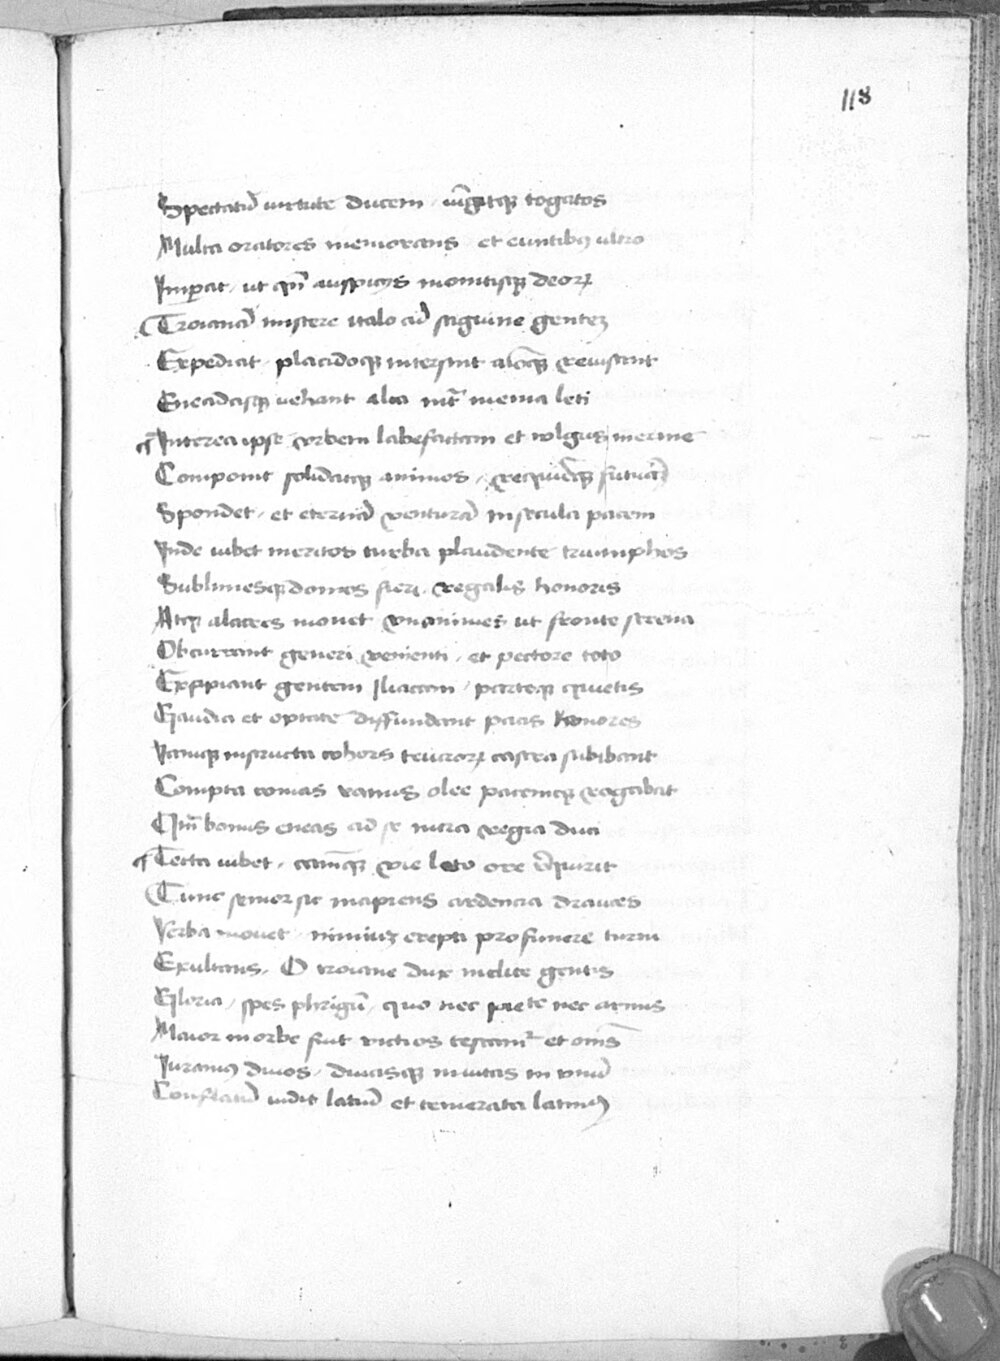 118
Spectatū uirtute ducem, iūgitqꝫ togatos
Multa oratores memorans, et euntibꝫ ultro
Imꝑat, ut qn̄ auspicijs monitisqꝫ deoꝝ
Troianā miscere italo cū sāguine gentez
Expediat, placidoqꝫ intersint aīoqꝫ reuisant
Eneadasqꝫ uehant alta intᵃ menia leti
Interea ipse urbem labefactam et uolgus inerme
Componit solidatqꝫ animos, requiēqꝫ futurā
Spondet, et eternā uentura in secula pacem
Inde iubet meritos turba plaudente triumphos
Sublimesqꝫ domos fieri, regalis honoris
Atqꝫ alacres mouet unanimes ut fronte serena
Obcurrant generi uenienti, et pectore toto
Excipiant gentem Iliacam, partēqꝫ quietis
Gaudia et optate diffundant pacis honores
Iamqꝫ instructa cohors teucroꝝ castra subibant
Compta comas ramis olee pacemqꝫ rogabat
Quā bonus eneas ad se intra regia duci
Tecta iubet, causāqꝫ uie leto ore reqͥrit
Tunc senior sic incipiens ardencia drances
Verba mouet, nimiuz erepti pro funere turni
Exultans, O troiane dux inclite gentis
Gloria, spes phrigū, quo nec pietate nec armis
Maior in orbe fuit uictios testamʳ et om̄s
Iuramꝰ diuos, diuasqꝫ inuitas in unū
Conflatū uidit latiū et temerata latinꝰ